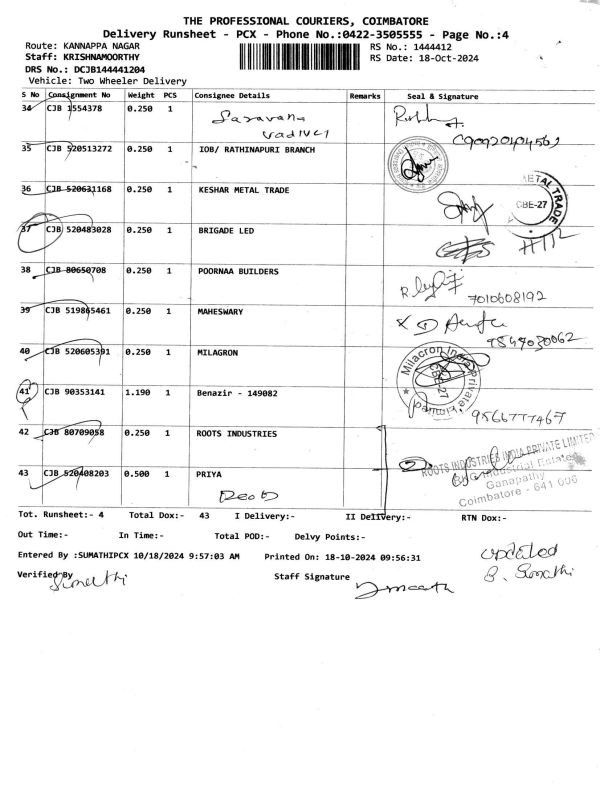 THE PROFESSIONAL COURIERS, COIMBATORE
Delivery Runsheet - PCX - Phone No.:0422-3505555 - Page No.:4
Route: KANNAPPA NAGAR RS No.: 1444412
Staff: KRISHNAMOORTHY RS Date: 18-Oct-2024
DRS No.: DCJB144441204
Vehicle: Two Wheeler Delivery
S No Consignment No Weight PCS Consignee Details Remarks Seal & Signature
34 CJB 1554378 0.250 1 Saravana
vadivel
35 CJB 520513272 0.250 1 IOB/ RATHINAPURI BRANCH
36 CJB 520631168 0.250 1 KESHAR METAL TRADE
METAL TRADE
CBE-27
37 CJB 520483028 0.250 1 BRIGADE LED
38 CJB 80650708 0.250 1 POORNAA BUILDERS
7010608192
39 CJB 519865461 0.250 1 MAHESWARY
9547030062
40 CJB 520605391 0.250 1 MILAGRON
Milacron India Private Limited
CBE-27
41 CJB 90353141 1.190 1 Benazir - 149082
9566777467
42 CJB 80709058 0.250 1 ROOTS INDUSTRIES
ROOTS INDUSTRIES INDIA PRIVATE LIMITED
Industrial Estate
Ganapathy
Coimbatore - 641 006
43 CJB 520408203 0.500 1 PRIYA
Tot. Runsheet:- 4 Total Dox:- 43 I Delivery:- II Delivery:- RTN Dox:-
Out Time:- In Time:- Total POD:- Delvy Points:-
Entered By :SUMATHIPCX 10/18/2024 9:57:03 AM Printed On: 18-10-2024 09:56:31
updated
B. Sumathi
Verified By Sumathi Staff Signature